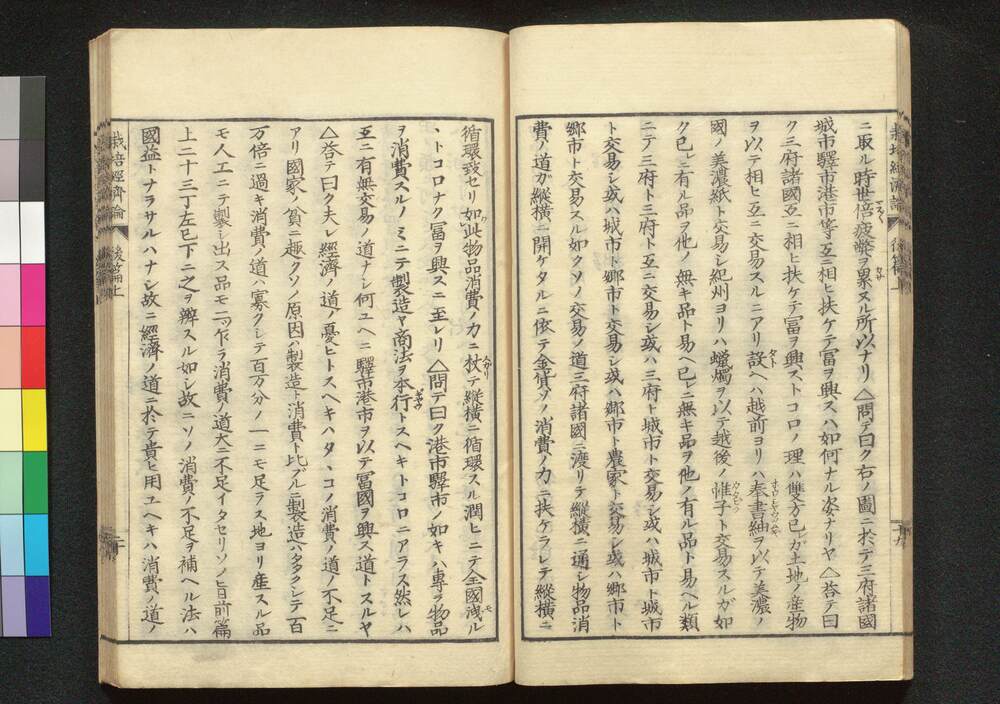 ニ取ル時世倍疲幣ヲ累ヌル所以ナリ △問テ曰ク右ノ圖ニ於テ三府諸國
城市驛市港市等互ニ相ヒ扶ケテ冨ヲ興スハ如何ナル姿ナリヤ △荅テ曰
ク三府諸國互ニ相ヒ扶ケテ冨ヲ興ストコロノ理ハ雙方己レガ土地ノ産物
ヲ以テ相ヒ互ニ交易スルニアリ設ヘハ越前ヨリハ奉書紬ヲ以テ美濃ノ
國ノ美濃紙ト交易シ紀州ヨリハ蠟燭ヲ以テ越後ノ帷子ト交易スルガ如
ク己レニ有ル品ヲ他ノ無キ品ト易ヘ己レニ無キ品ヲ他ノ有ル品ト易ヘル類
ニテ三府ト三府ト互ニ交易シ或ハ三府ト城市ト交易シ或ハ城市ト城市
ト交易シ或ハ城市ト郷市ト交易シ或ハ郷市ト農家ト交易シ或ハ郷市ト
郷市ト交易スル如クソノ交易ノ道三府諸國ニ渡リテ縱橫ニ通シ物品消
費ノ道ガ縱橫ニ開ケタルニ依テ金貨ソノ消費ノ力ニ扶ケラレテ縱橫ニ
栽培經濟論 後篇上
十九
循環致セリ如此物品消費ノ力ニ杖テ縱橫ニ循環スル潤ヒニテ全國洩ル
、トコロナク冨ヲ興スニ至レリ △問テ曰ク港市驛市ノ如キハ專ラ物品
ヲ消費スルノミニテ製造ヤ商法ヲ本行トスヘキトコロニアラス然レハ
互ニ有無交易ノ道ナシ何ユヘニ驛市港市ヲ以テ冨國ヲ興ス道トスルヤ
△荅テ曰ク夫レ經濟ノ道ノ憂ヒトスヘキハタ、コノ消費ノ道ノ不足ニ
アリ國家ノ貧ニ趣クソノ原因ハ製造ト消費ト比ブルニ製造ハ夛クシテ百
万倍ニ過キ消費ノ道ハ寡クシテ百万分ノ一ニモ足ラス地ヨリ産スル品
モ人工ニテ製シ出ス品モニツ乍ラ消費ノ道大ニ不足イタセリソノ旨前篇
上二十三丁左已下ニ之ヲ辨スル如シ故ニソノ消費ノ不足ヲ補ヘル法ハ
國益トナラサルハナシ故ニ經濟ノ道ニ於テ貴ヒ用ユヘキハ消費ノ道ノ
栽培經濟論 後篇上
二十